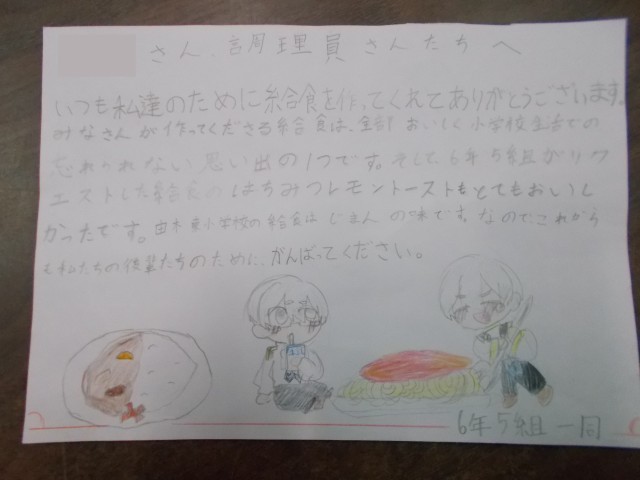 さん、調理員さんたちへ
いつも私達のために給食を作ってくれてありがとうございます。
みなさんが作ってくださる給食は、全部おいしく小学校生活での
忘れられない思い出の1つです。そして6年5組がリク
エストした給食のはちみつレモントーストもとてもおいし
かったです。由木東小学校の給食はじまんの味です。なのでこれから
も私たちの後輩たちのために、がんばってください。
6年5組一同